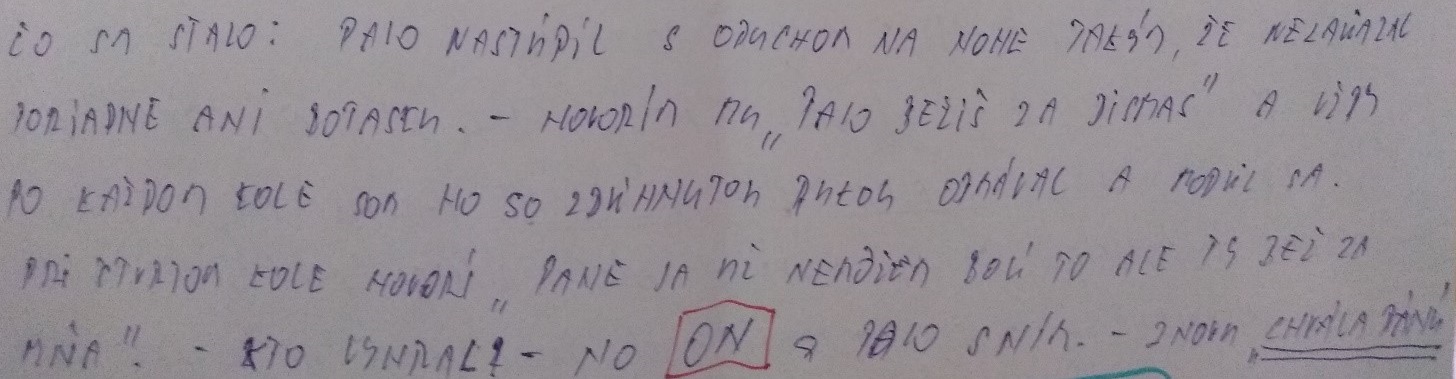 ČO SA STALO: PALO NASTÚPIL S OPUCHOM NA NOHE TAKÝM, ŽE NEZAVIAZAL
PORIADNE ANI BOTASKU. - HOVORÍM MU „PALO BEŽÍŠ ZA DISMAS" A VŽDY
PO KAŽDOM KOLE SOM HO SO ZDVIHNUTOU RUKOU OPMÁVAL A MODLIL SA.
PRI ŠTVRTOM KOLE HOVORÍ „PANE JA NI NEMÔŽEM BOLÍ TO ALE TY BEŽ ZA
MŇA". - KTO VYHRAL? - NO ON A PALO S NÍM. - ZNOVU „CHVÁLA PÁNU